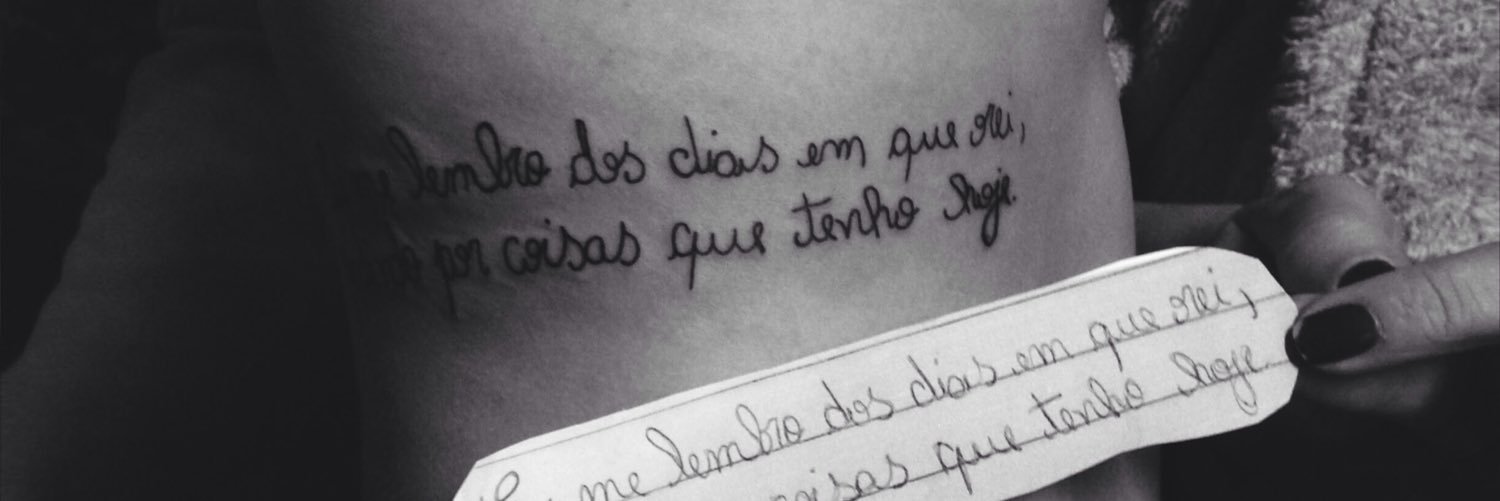 me lembro dos dias em que orei,
por coisas que tenho hoje.
me lembro dos dias em que orei,
coisas que tenho hoje.